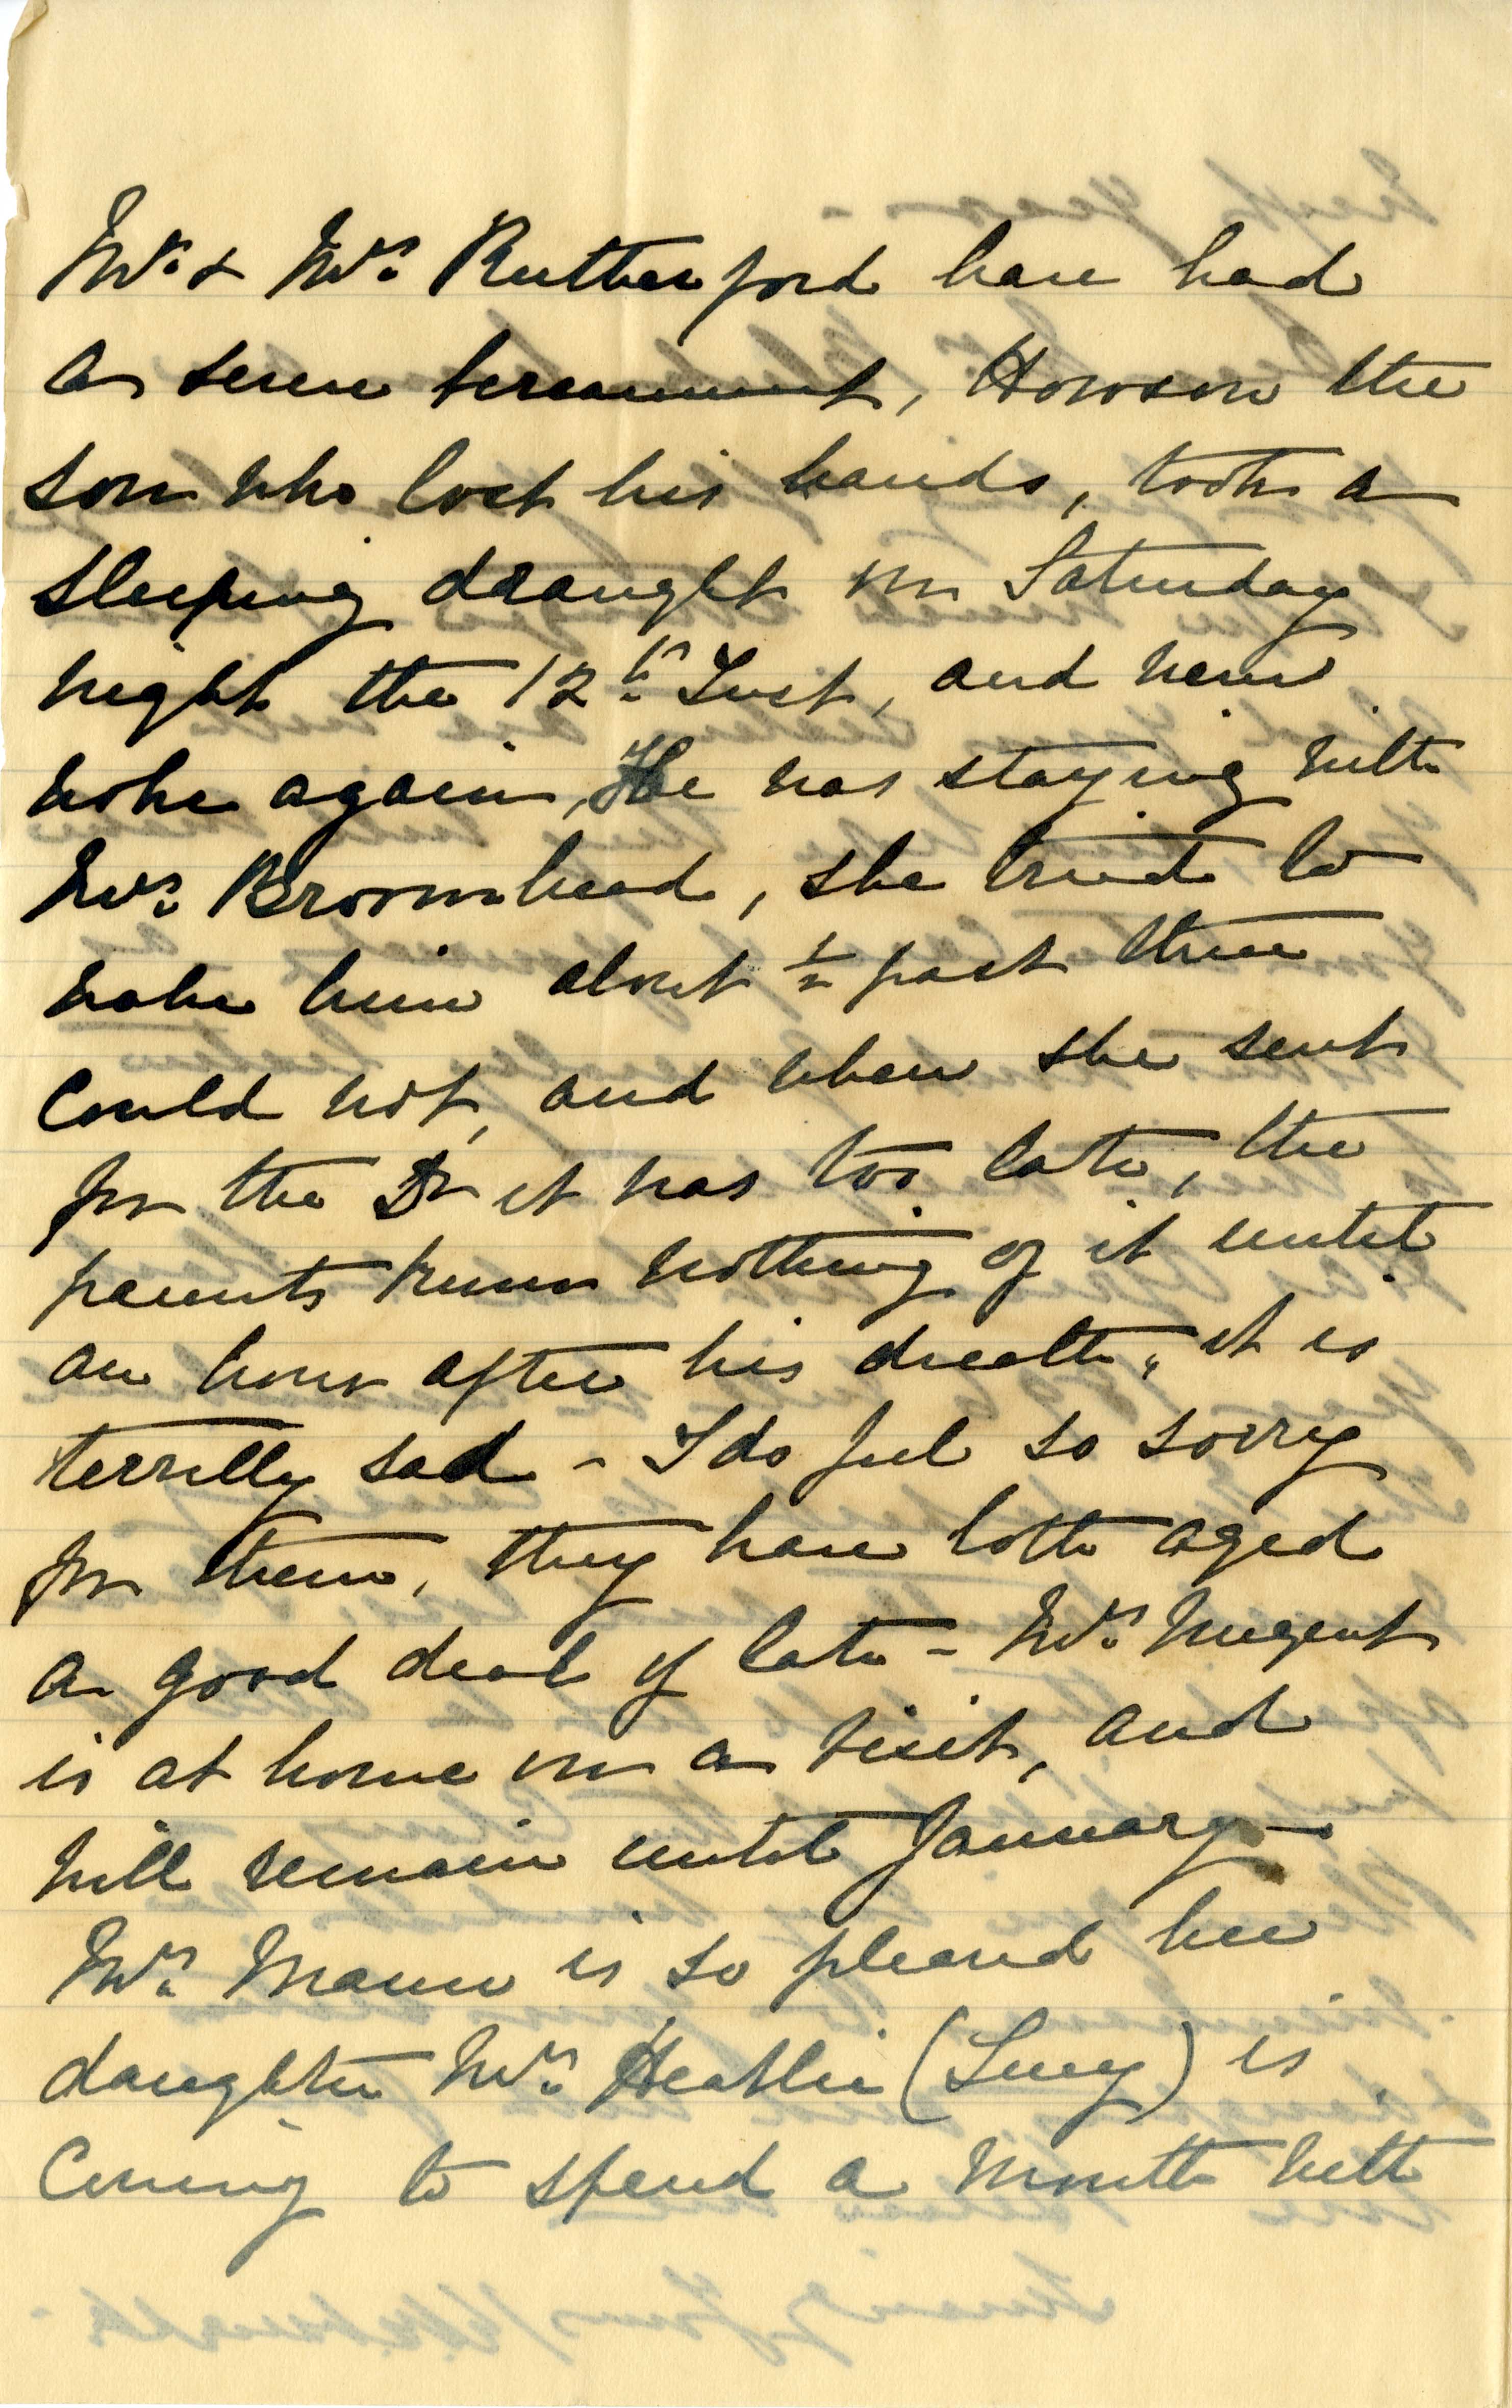 Mr. & Mrs. Rutherford have had
a severe bereavement, Howson the
son who lost his hands, took a
sleeping draught on Saturday
night the 12th Inst, and never
woke again, He was staying with
Mrs. Broomhead, she tried to
wake him about ½ past three
could not, and when she sent
for the Dr it was too late, the
parents knew nothing of it until
an hour after his death, it is
terribly sad - I do feel so sorry
for them, they have both aged
a good deal of late - Mrs. Nugent
is at home on a visit, and
will remain until January -
Mrs. Mann is so pleased her
daughter Mrs. Heatlie (Lucy) is
coming to spend a month with